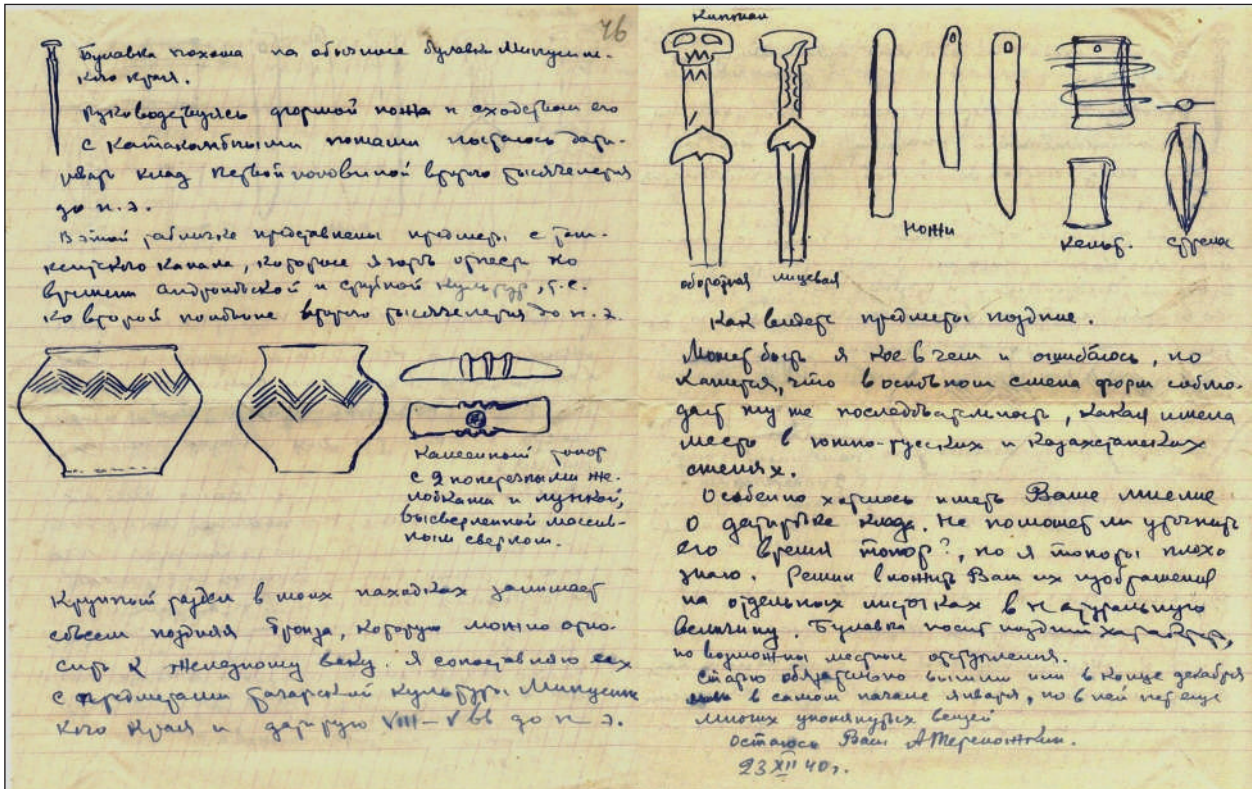 46
Булавка похожа на обычные булавки Минусинс-
кого края.
Руководствуясь формой ножа и сходством его
с катакомбными ножами пытаюсь дати-
ровать клад первой половиной второго тысячелетия
до н.э.
В этой табличке представлены предметы с Таш-
кентского канала, которые я отнес ко
времени андроновской и срубной культур, т.е.
ко второй половине второго тысячелетия до н.э.
Каменный топор
с 2 поперечными же-
лобками и лункой,
высверленной массив-
ным сверлом.
Крупный раздел в моих находках занимает
совсем поздняя бронза, которую можно отно-
сить к железному веку. Я сопоставляю ее
с предметами тагарской культуры Минусинс
кого края и датирую VIII–V вв до н э.
Кинжал
оборотная лицевая
ножи
кельт.
стрела
Как видите предметы поздние.
Может быть я кое в чем и ошибаюсь, но
кажется, что в основном смена форм соблю-
дает ту же последовательность, какая имела
место в южно-русских и казахстанских
степях.
Особенно хотелось иметь Ваше мнение
о датировке клада. Не поможет ли уточнить
его время топор?, но я топоры плохо
знаю. Решил вложить Вам их изображения
на отдельных листках в натуральную
величину. Булавка носит поздний характер,
но возможны местные отступления.
Статью обязательно вышлю или в конце декабря
или в самом начале января, но в ней нет еще
многих упомянутых вещей
Остаюсь Ваш А Тереножкин.
23 XII 40 г.